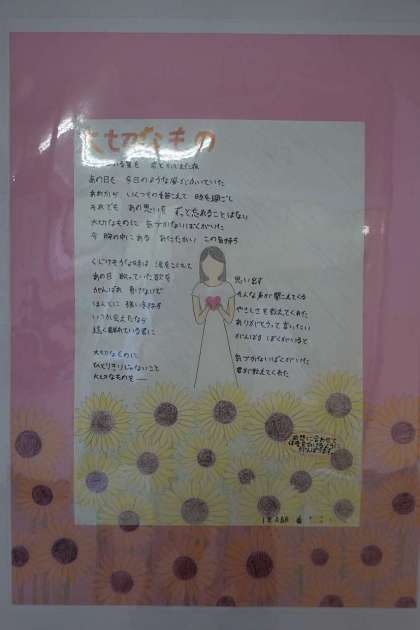 大切なもの
かる星を 君とかぞえた夜
あの日も 今日のような風がふいていた
あれから いくつもの季節こえて 時を過ごし
それでも あの想いを ずっと忘れることはない
大切なものに 気づかないぼくがいた
今 胸の中にある あたたかい この気持ち
くじけそうな時は 涙をこらえて
あの日 歌っていた歌を 思い出す
がんばれ 負けないで そんな声が聞こえてくる
ほんとに 強い気持ち やさしさを教えてくれた
いつか会えたなら ありがとうって言いたい
遠く離れている君に がんばる ぼくがいると
大切なものに 気づかないぼくがいた
ひとりきりじゃないこと 君が教えてくれた
大切なものを
に合わせて
がんばります。